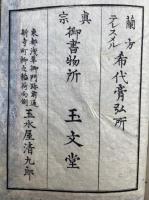 蘭方
テレスル
希代膏弘所
真宗
御書物所
玉文堂
東都浅草御門跡前通
新寺町御太稲荷向側
玉水屋清九郎